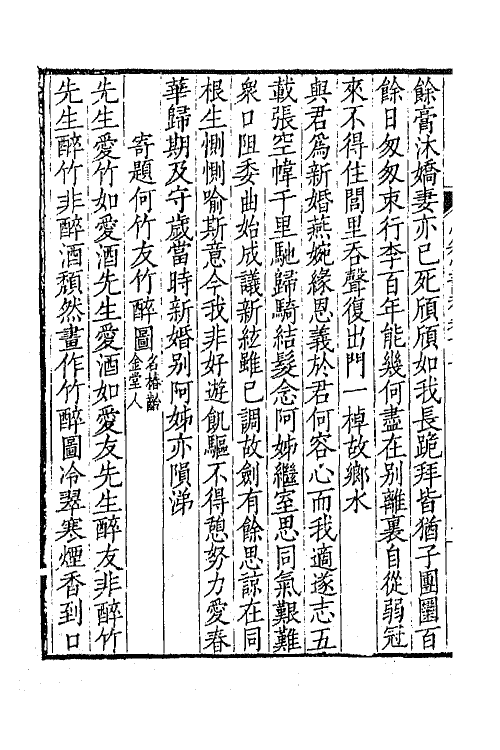 餘膏沐嬌妻亦已死頎頎如我長跪拜皆猶子團圞百
餘日匆匆束行李百年能幾何盡在別離裏自從弱冠
來不得住閭里吞聲復出門一棹故鄉水
與君爲新婚燕婉緣恩義於君何容心而我適遂志五
載張空幃千里馳歸騎結髮念阿姊繼室思同氣艱難
衆口阻委曲始成議新絃雖已調故劍有餘思諒在同
根生惻惻喻斯意今我非好遊飢驅不得憩努力愛春
華歸期及守歲當時新婚別阿姊亦隕涕
寄題何竹友竹醉圖名椿齡金堂人
先生愛竹如愛酒先生愛酒如愛友先生醉友非醉竹
先生醉竹非醉酒頹然畫作竹醉圖冷翠寒煙香到口